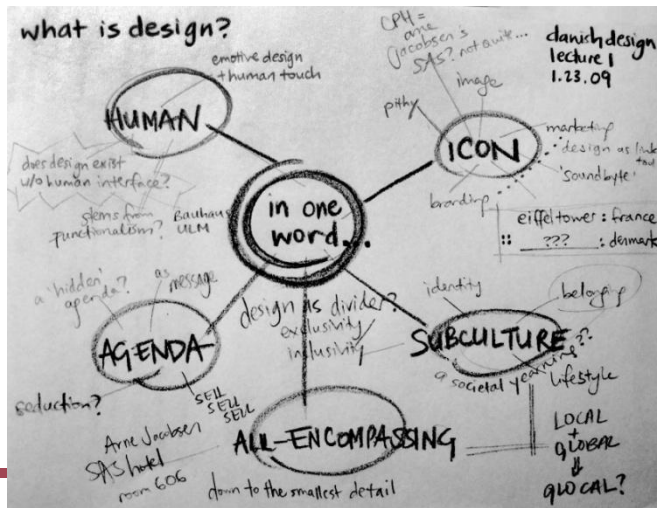 what is design?
emotive design
+ human touch
HUMAN
does design exist
w/o human interface?
stems from
functionalism?
Bauhaus
ULM
CPH =
arne
jacobsen's
SAS? not quite...
danish design
lecture 1
1.23.09
image
pithy
ICON
marketing
design as link
'soundbyte'
branding
eiffel tower : france
:: ??? : denmark
in one
word...
a 'hidden'
agenda?
as
message
AGENDA
seduction?
SELL
SELL
SELL
design as divider?
exclusivity
inclusivity
identity
belonging
SUBCULTURE
a societal yearning??
lifestyle
Arne Jacobsen
SAS hotel
room 606
ALL-ENCOMPASSING
down to the smallest detail
LOCAL
+
GLOBAL
GLOCAL?